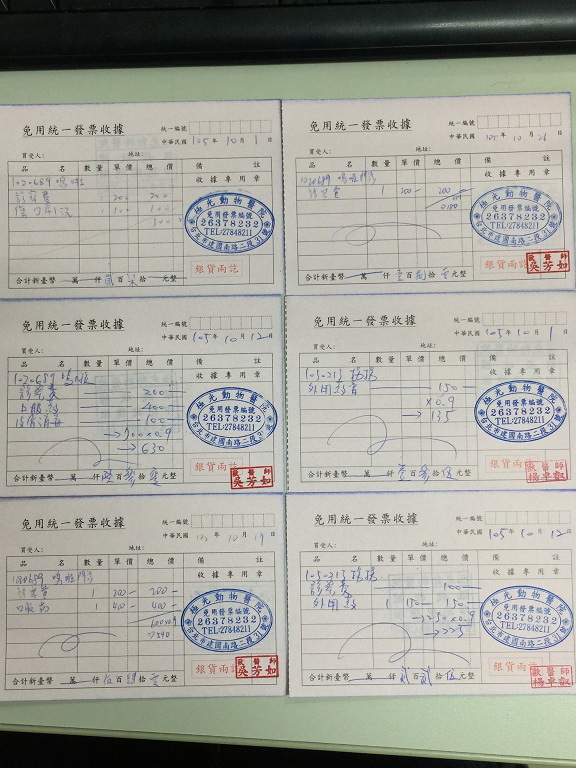 免用統一發票收據
統一編號
中華民國 105年10月1日
買受人： 地址：
品 名 數量 單價 總價 備 註
收據專用章
1020689
診察費 200 200
100 100
極光動物醫院
免用發票編號
26378232
TEL:27848211
台北市建國南路二段31號
銀貨兩訖
合計新臺幣 萬 仟 百 拾 元整
免用統一發票收據
統一編號
中華民國 105年10月26日
買受人： 地址：
品 名 數量 單價 總價 備 註
收據專用章
1020689
診察費 1 200 200
極光動物醫院
免用發票編號
26378232
TEL:27848211
台北市建國南路二段31號
銀貨兩訖
獸醫師
吳芳如
合計新臺幣 萬 仟 壹百捌拾零元整
免用統一發票收據
統一編號
中華民國 105年10月12日
買受人： 地址：
品 名 數量 單價 總價 備 註
收據專用章
1020689
診察費 200
口服藥 400
100
→700×0.9
→630
極光動物醫院
免用發票編號
26378232
TEL:27848211
台北市建國南路二段31號
銀貨兩訖
獸醫師
吳芳如
合計新臺幣 萬 仟 陸百參拾零元整
免用統一發票收據
統一編號
中華民國 105年10月1日
買受人： 地址：
品 名 數量 單價 總價 備 註
收據專用章
1050213
外用藥膏 150
×0.9
→135
極光動物醫院
免用發票編號
26378232
TEL:27848211
台北市建國南路二段31號
銀貨兩訖
獸醫師
楊卓叡
合計新臺幣 萬 仟 壹百參拾伍元整
免用統一發票收據
統一編號
中華民國 105年10月19日
買受人： 地址：
品 名 數量 單價 總價 備 註
收據專用章
1020689
診察費 1 200 200
口服藥 1 400 400
600×0.9
→540
極光動物醫院
免用發票編號
26378232
TEL:27848211
台北市建國南路二段31號
銀貨兩訖
獸醫師
吳芳如
合計新臺幣 萬 仟 伍百肆拾零元整
免用統一發票收據
統一編號
中華民國 105年10月12日
買受人： 地址：
品 名 數量 單價 總價 備 註
收據專用章
1050213
診察費 100
外用藥 1 150 150
→250×0.9
→225
極光動物醫院
免用發票編號
26378232
TEL:27848211
台北市建國南路二段31號
銀貨兩訖
獸醫師
楊卓叡
合計新臺幣 萬 仟 貳百貳拾伍元整